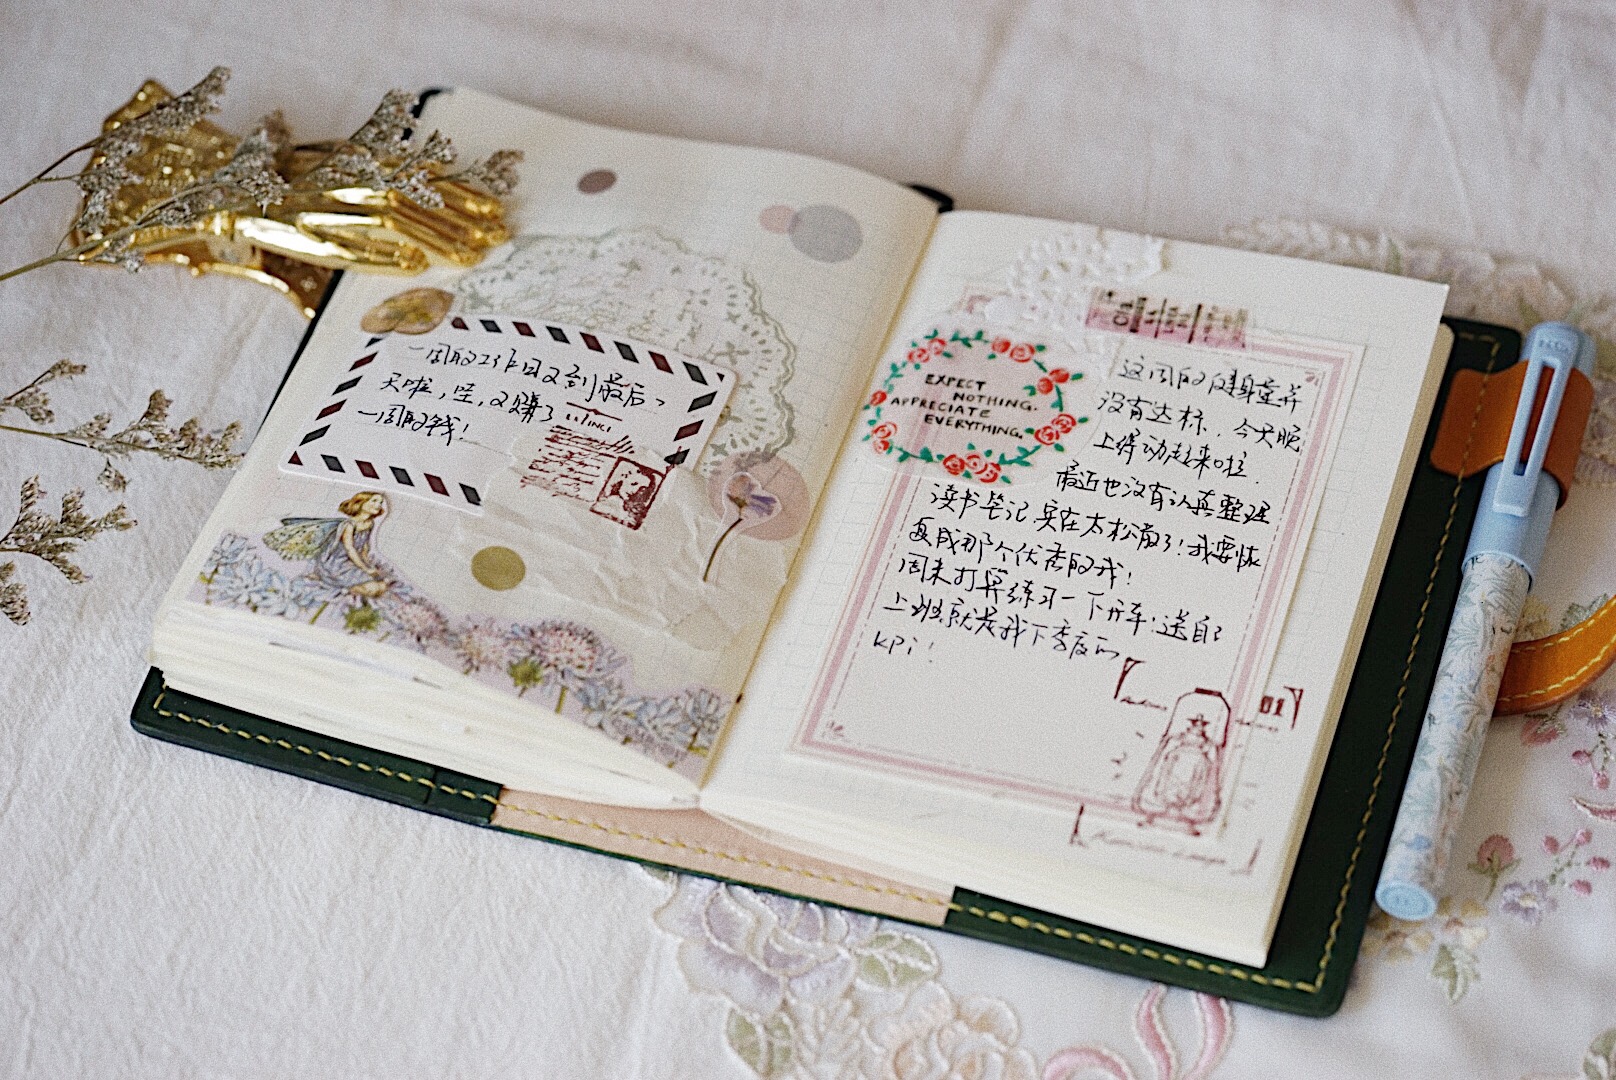 一周的工作日又到最后一
天啦，哇，又赚了
一周的钱！
VINCI
EXPECT
NOTHING.
APPRECIATE
EVERYTHING.
这周的健身量并
没有达标，今天晚
上得动起来啦．
最近也没有认真整理
读书笔记，实在太松散了！我要恢
复成那个优秀的我！
周末打算练习一下开车！送自己
上班就是我下季度的
KPi！
01